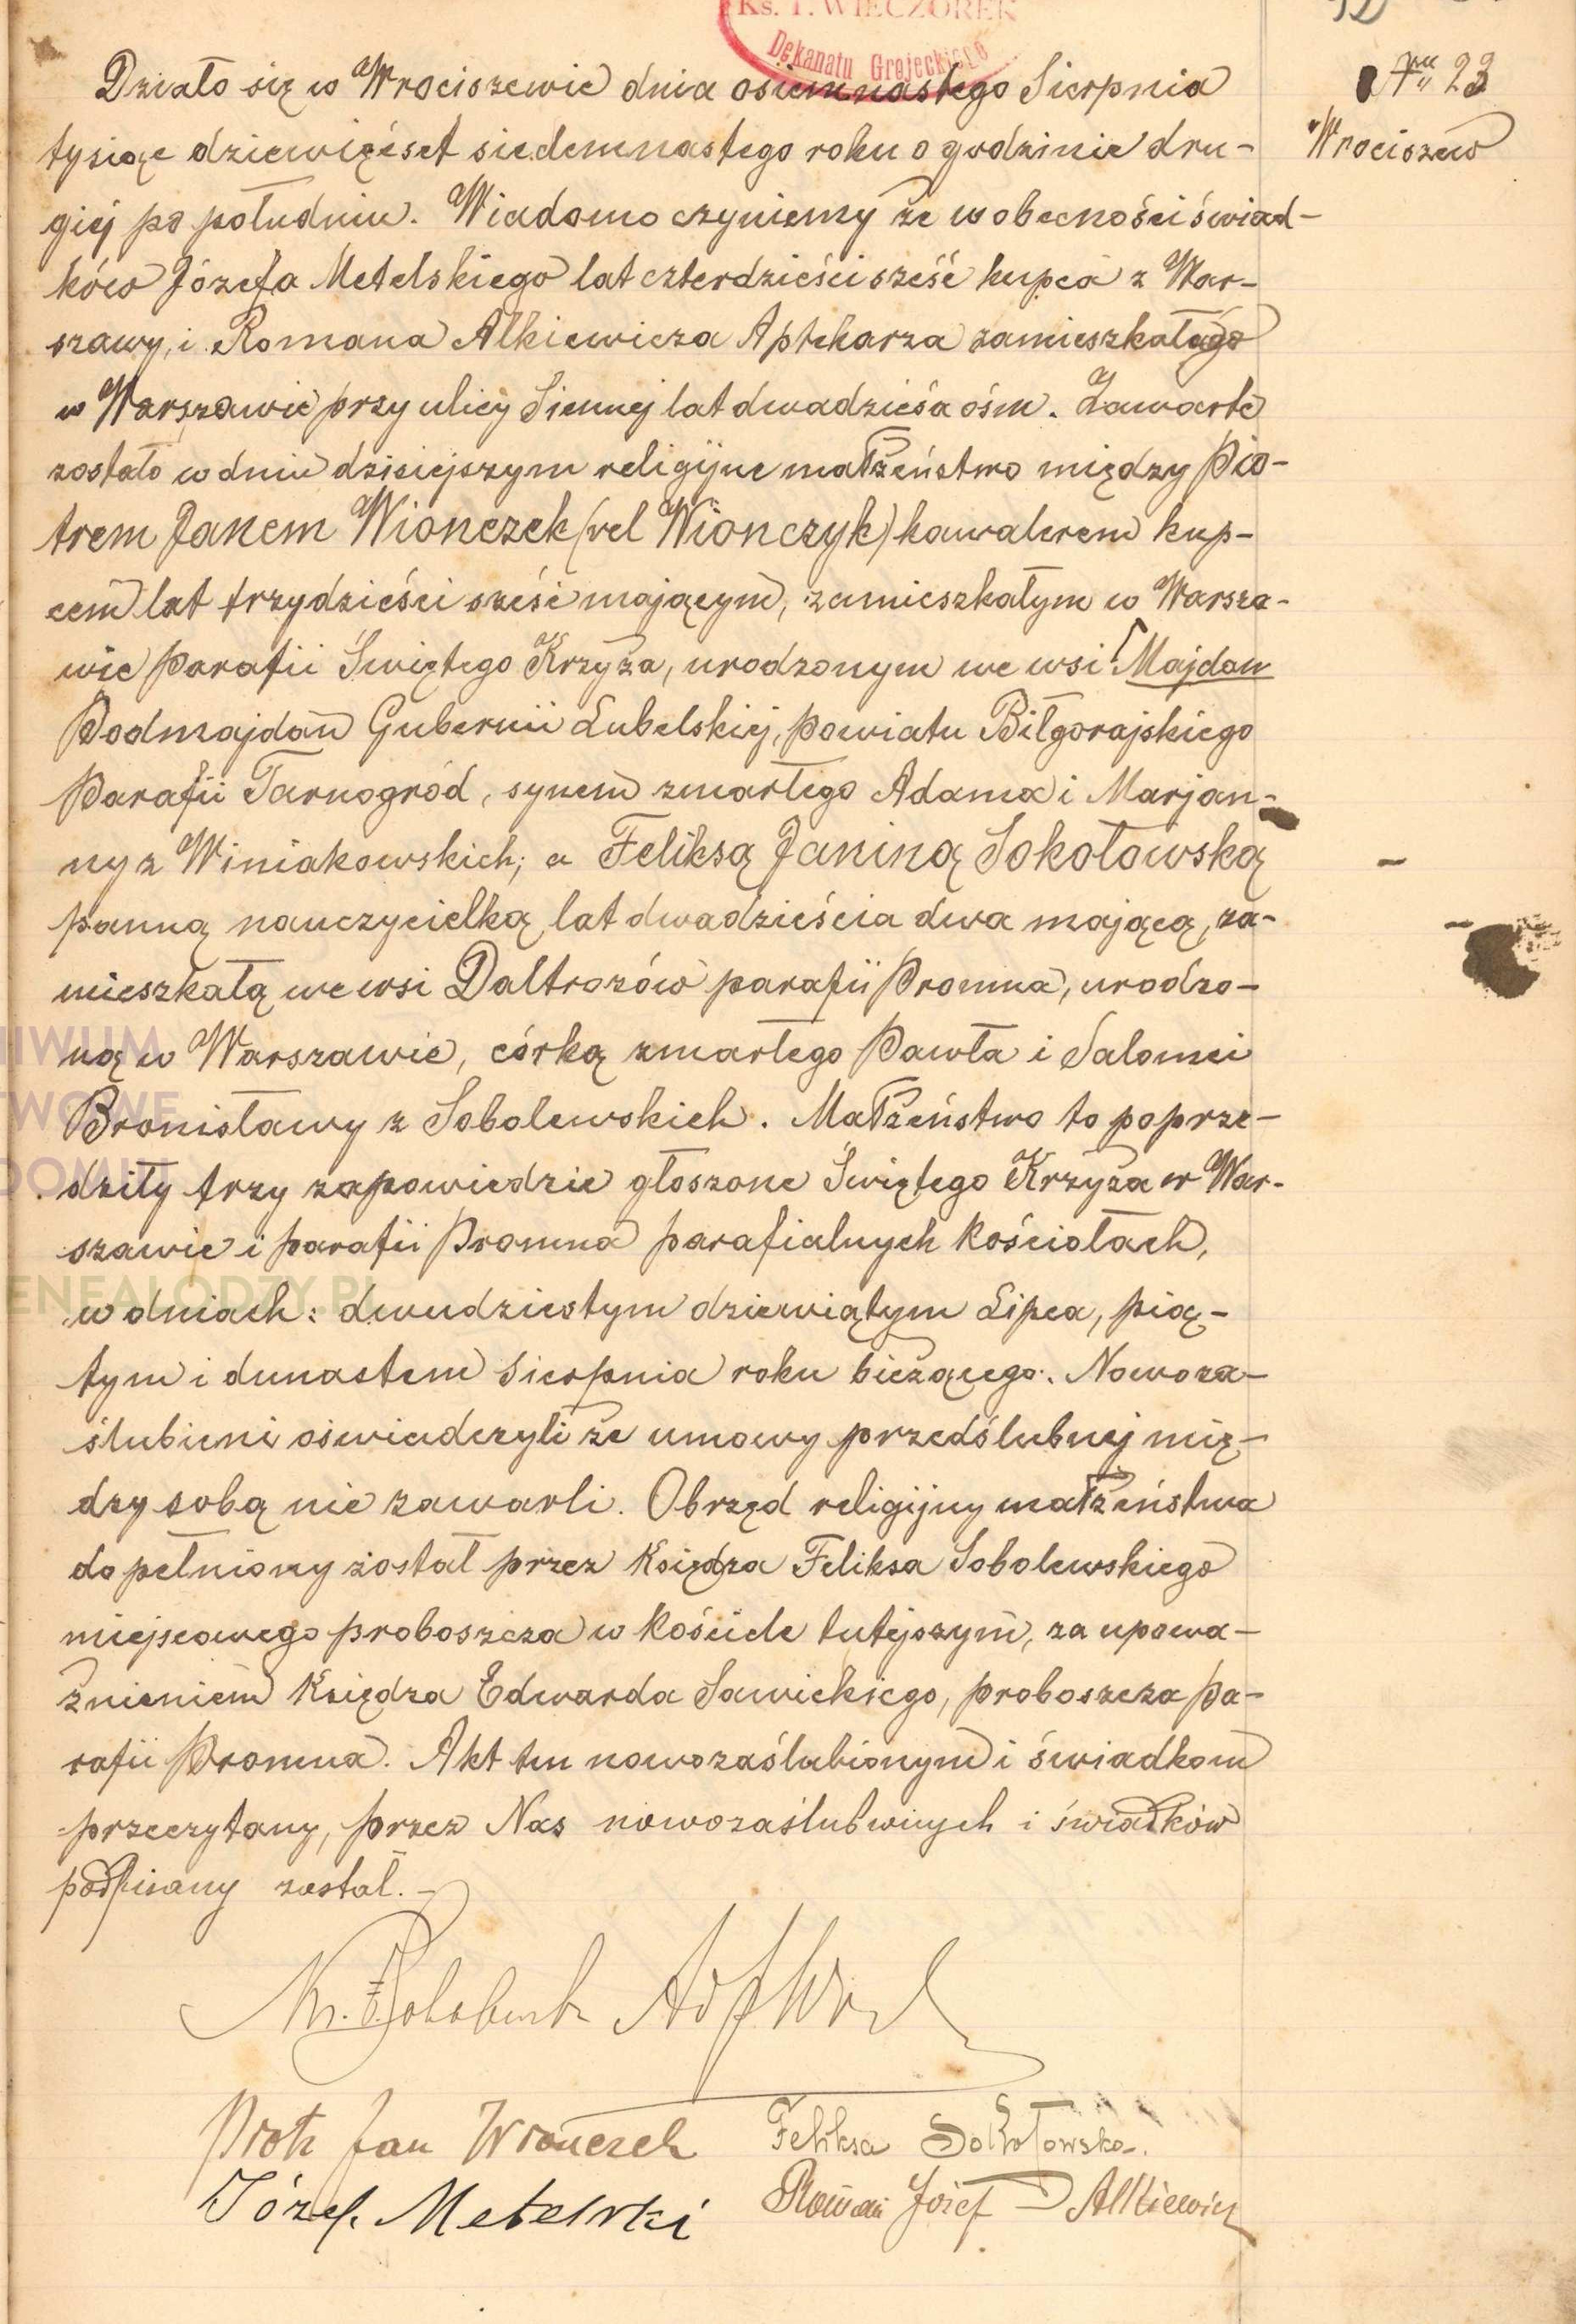 Ks. T. WIECZOREK
Dekanatu Grojeckiego
No 23
Wrociszew
Działo się w Wrociszewie dnia osiemnastego Sierpnia
tysiąc dziewięćset siedemnastego roku o godzinie dru-
giej po południu. Wiadomo czyniemy że w obecności świad-
ków Józefa Metelskiego lat czterdzieści sześć kupca z War-
szawy, i Romana Alkiewicza Aptekarza zamieszkałego
w Warszawie przy ulicy Siennej lat dwadzieścia ośm. Zawarte
zostało w dniu dzisiejszym religijne małżeństwo między Pio-
trem Janem Wionczek (vel Wionczyk) kawalerem kup-
cem lat trzydzieści sześć mającym, zamieszkałym w Warsza-
wie Parafii Świętego Krzyża, urodzonym we wsi Majdan
Podmajdan Gubernii Lubelskiej, powiatu Biłgorajskiego
Parafii Tarnogród, synem zmarłego Adama i Marjan-
ny z Winiakowskich; a Feliksą Janiną Sokołowską
panną nauczycielką lat dwadzieścia dwa mającą, za-
mieszkałą we wsi Daltrozów parafii Promna, urodzo-
ną w Warszawie, córką zmarłego Pawła i Salomei
Bronisławy z Sobolewskich. Małżeństwo to poprze-
dziły trzy zapowiedzie głoszone Świętego Krzyża w War-
szawie i parafii Promna parafialnych kościołach,
w dniach: dwudziestym dziewiątym Lipca, pią-
tym i dunastem Sierpnia roku bieżącego. Nowoza-
ślubieni oświadczyli że umowy przedślubnej mię-
dzy sobą nie zawarli. Obrzęd religijny małżeństwa
dopełniony został przez Księdza Feliksa Sobolewskiego
miejscowego proboszcza w kościele tutejszym, za upowa-
żnieniem Księdza Edwarda Sawickiego, proboszcza pa-
rafii Promna. Akt ten nowozaślubionym i świadkom
przeczytany, przez Nas nowozaślubionych i świadków
podpisany został.-
Piotr Jan Wionczek Feliksa Sokołowska.
Józef Metelski Roman Józef Alkiewicz